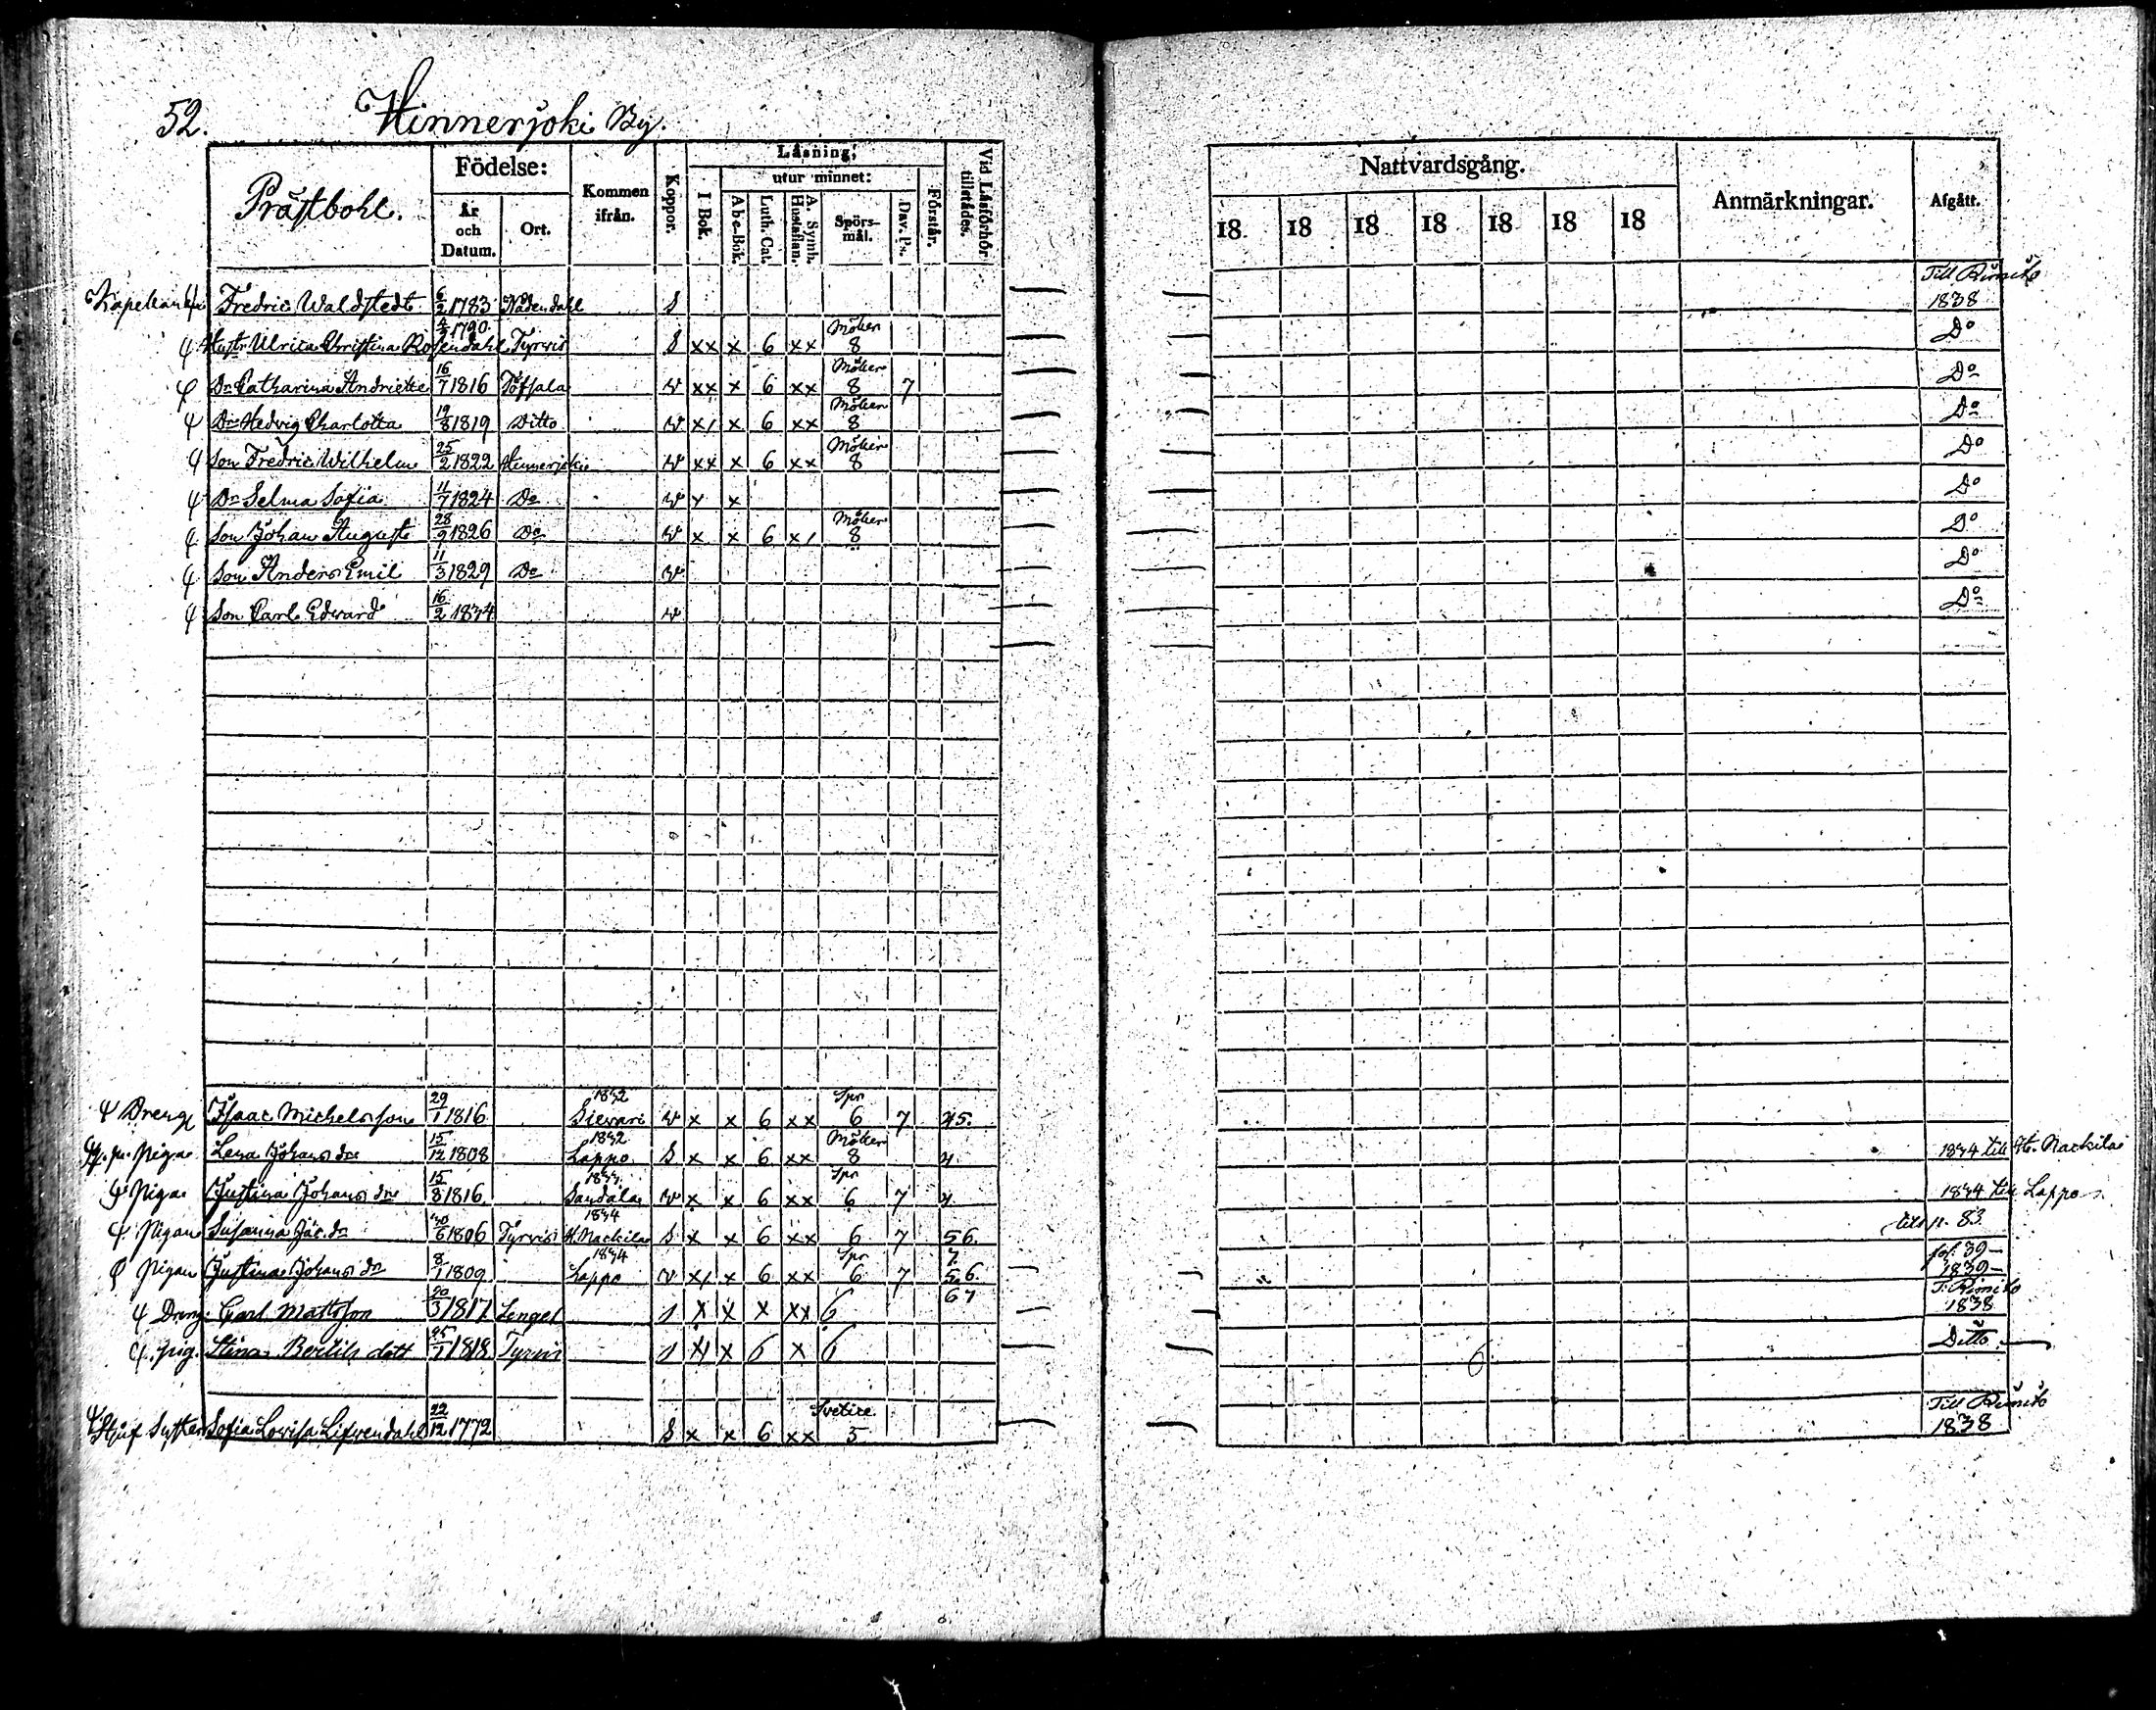 52. Hinnerjoki By.
Prästbohl. Födelse: Kommen ifrån. Koppor. Läsning, Vid Läsförhör tillstådes.
År och Datum. Ort. I Bok. utur minnet: Förstår.
Abc-Bok. Luth. Cat. A. Symb. Hustaflan. Spörsmål. Dav. Ps.
Nattvardsgång. Anmärkningar. Afgått.
18 18 18 18 18 18 18
Kapellan Fredric Waldstedt 6/2 1783 Nådendahl S Till Rimito 1838
Hustr Ulrica Christina Rosendahl 4/9 1790 Tyrvis S xx x 6 xx Möller 8 Do
Dr Catharina Andriette 16/7 1816 Töfsala v xx x 6 xx Möller 8 7 Do
Dr Hedvig Charlotta 19/8 1819 Ditto v x/ x 6 xx Möller 8 Do
Son Fredric Wilhelm 25/2 1822 Hinnerjoki v xx x 6 xx Möller 8 Do
Dr Selma Sofia 11/7 1824 Do v x x Do
Son Johan August 28/9 1826 Do v x x 6 x/ Möller 8 Do
Son Anders Emil 11/3 1829 Do v Do
Son Carl Edvard 16/2 1834 v Do
Dreng Isaac Michelsson 29/1 1816 1832 Sievari v x x 6 xx Spr 6 7 45.
Pigan Lena Johansdr 15/12 1808 1832 Lappo S x x 6 xx Möller 8 4. 1834 till H. Nackila
Pigan Justina Johansdr 15/8 1816 Sandala v x x 6 xx Spr 6 7 4 1834 till Lappo
Pigan Susanna Jac. dr 30/6 1806 Tyrvis 1834 H. Nackila S x x 6 xx 6 7 56. till p. 83.
Pigan Justina Johansdr 8/1 1809 1834 Lappo v x/ x 6 xx Spr 6 7 7. 56. fol. 39 1839
Dreng Carl Mattsson 20/3 1817 Lengel 1 x x x xx 6 67 T. Rimito 1838
pig. Stina Bertils dott 25/1 1818 Tyrvis 1 x x 6 x 6 6 Ditto
Stjuf Syster Sofia Lovisa Lifvendahl 22/12 1772 S x x 6 xx Svetice 5 Till Rimito 1838